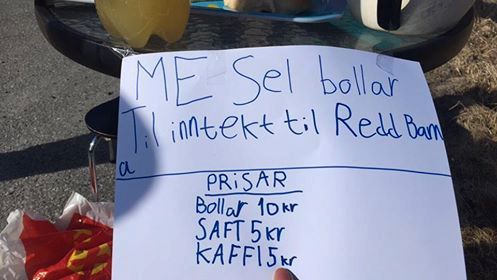 ME Sel bollar
Til inntekt til Redd Barn
a
PRISAR
Bollar 10kr
SAFT 5kr
KAFFI 5kr